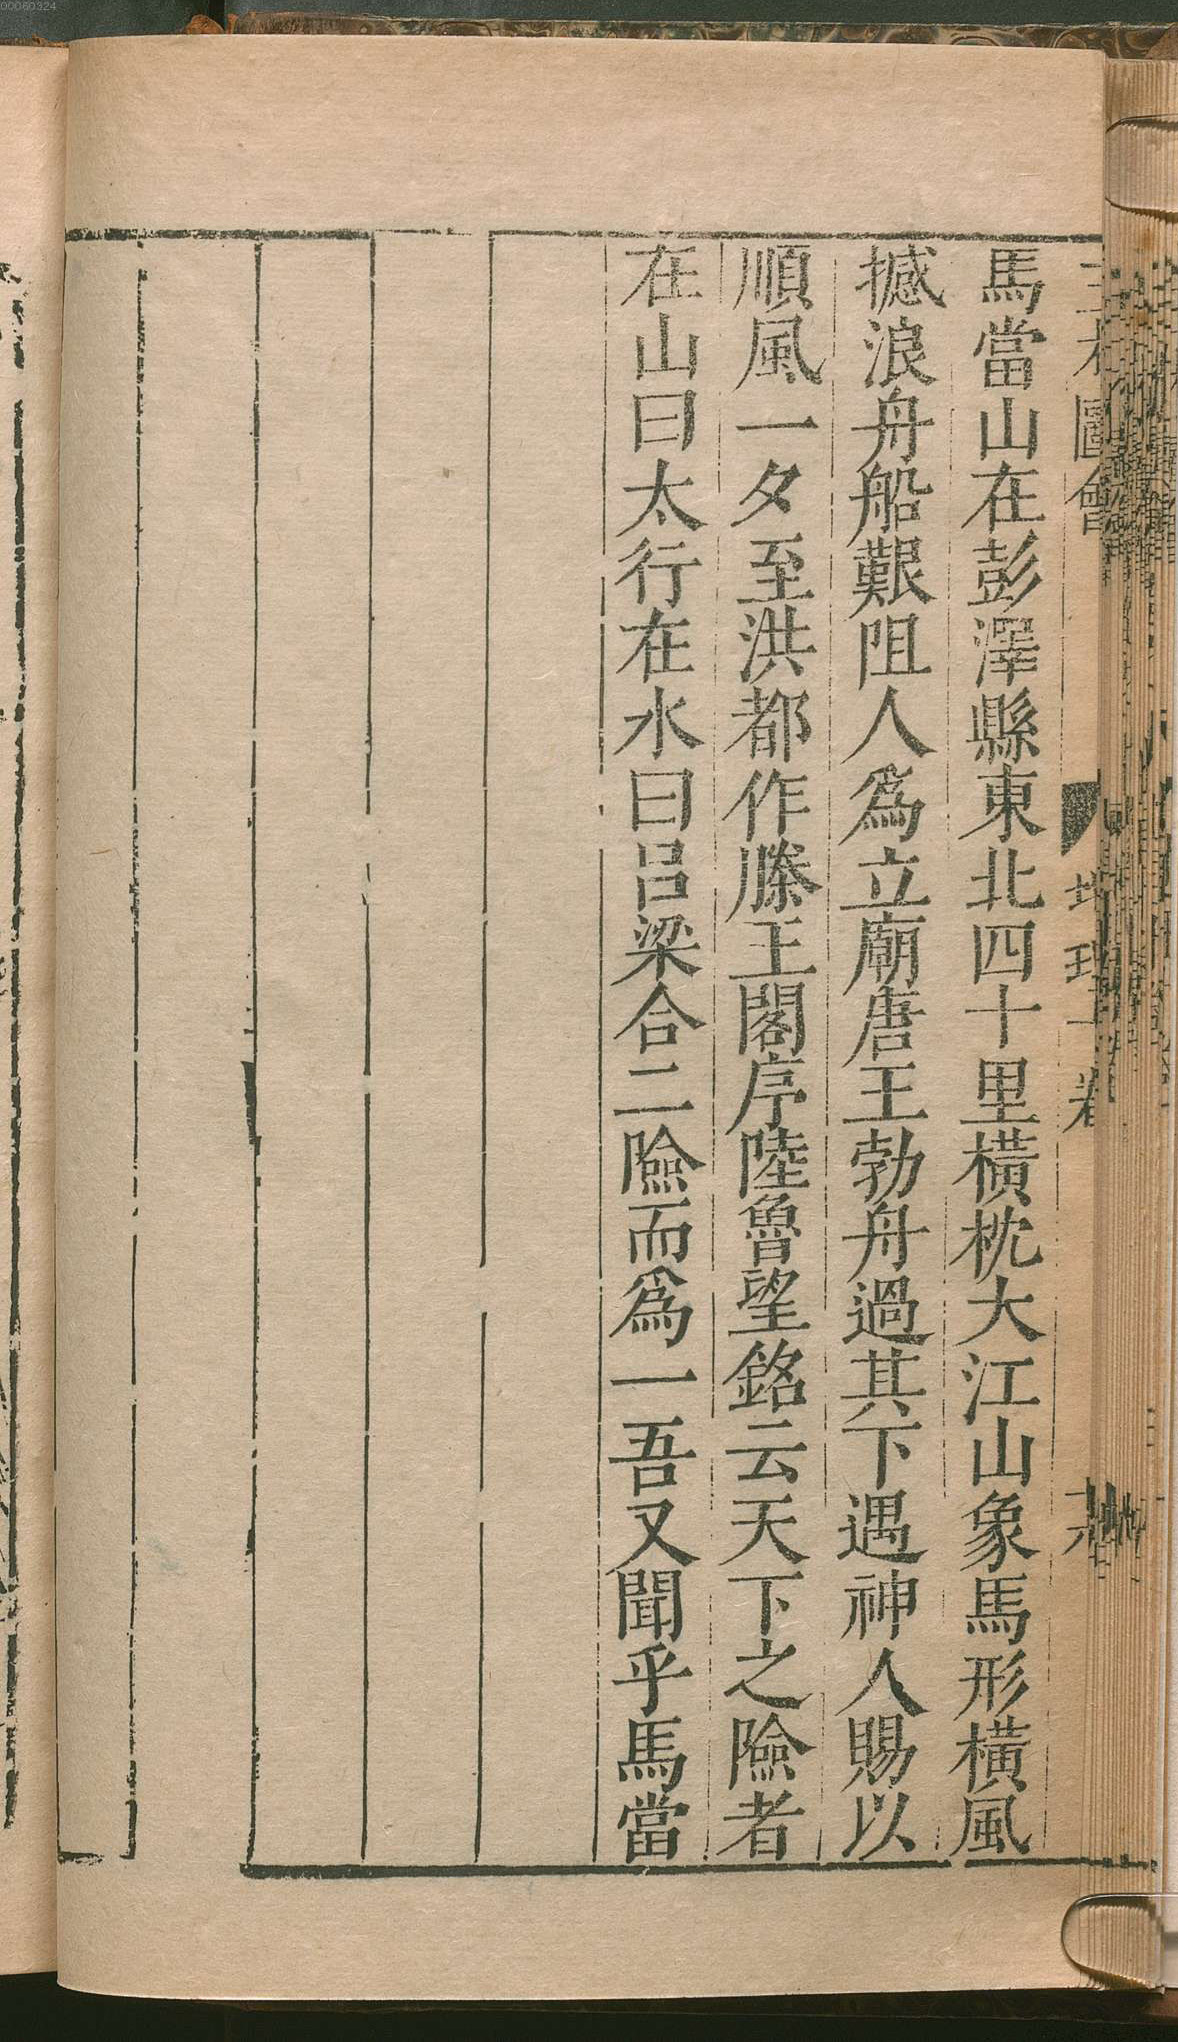 00060324
馬當山在彭澤縣東北四十里橫枕大江山象馬形橫風
撼浪舟船艱阻人爲立廟唐王勃舟過其下遇神人賜以
順風一夕至洪都作滕王閣序陸魯望銘云天下之險者
在山曰太行在水曰呂梁合二險而爲一吾又聞乎馬當